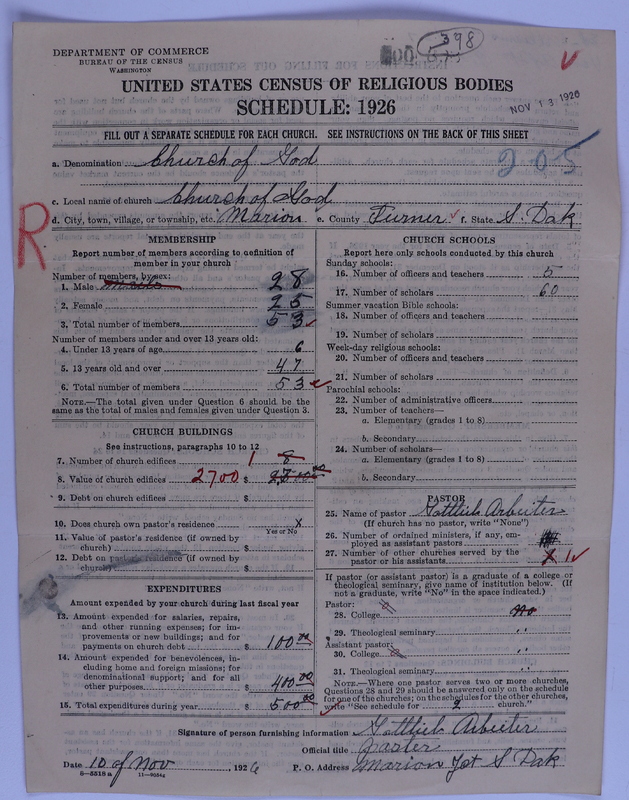 398
DEPARTMENT OF COMMERCE
BUREAU OF THE CENSUS
WASHINGTON
UNITED STATES CENSUS OF RELIGIOUS BODIES
SCHEDULE: 1926
NOV 13 1926
FILL OUT A SEPARATE SCHEDULE FOR EACH CHURCH. SEE INSTRUCTIONS ON THE BACK OF THIS SHEET
a. Denomination Church of God
205
c. Local name of church Church of God
d. City, town, village, or township, etc. Marion e. County Turner f. State S. Dak
R
MEMBERSHIP
Report number of members according to definition of
member in your church
Number of members, by sex:
1. Male 28
2. Female 25
3. Total number of members 53
Number of members under and over 13 years old:
4. Under 13 years of age 6
5. 13 years old and over 47
6. Total number of members 53
NOTE.—The total given under Question 6 should be the
same as the total of males and females given under Question 3.
CHURCH BUILDINGS
See instructions, paragraphs 10 to 12
7. Number of church edifices 1
8. Value of church edifices 2700 $
9. Debt on church edifices $
10. Does church own pastor's residence x
Yes or No
11. Value of pastor's residence (if owned by
church) $
12. Debt on pastor's residence (if owned by
church) $
EXPENDITURES
Amount expended by your church during last fiscal year
13. Amount expended for salaries, repairs,
and other running expenses; for im-
provements or new buildings; and for
payments on church debt $ 100 00
14. Amount expended for benevolences, in-
cluding home and foreign missions; for
denominational support; and for all
other purposes $ 400 00
15. Total expenditures during year $ 500 00
CHURCH SCHOOLS
Report here only schools conducted by this church
Sunday schools:
16. Number of officers and teachers 5
17. Number of scholars 60
Summer vacation Bible schools:
18. Number of officers and teachers
19. Number of scholars
Week-day religious schools:
20. Number of officers and teachers
21. Number of scholars
Parochial schools:
22. Number of administrative officers
23. Number of teachers—
a. Elementary (grades 1 to 8)
b. Secondary
24. Number of scholars—
a. Elementary (grades 1 to 8)
b. Secondary
PASTOR
25. Name of pastor Gottlieb Arbeiter
(If church has no pastor, write "None")
26. Number of ordained ministers, if any, em-
ployed as assistant pastors
27. Number of other churches served by the
pastor or his assistants 1
If pastor (or assistant pastor) is a graduate of a college or
theological seminary, give name of institution below. (If
not a graduate, write "No" in the space indicated.)
Pastor:
28. College No
29. Theological seminary "
Assistant pastor:
30. College "
31. Theological seminary "
NOTE.—Where one pastor serves two or more churches,
Questions 28 and 29 should be answered only on the schedule
for one of the churches; on the schedules for the other churches,
write "See schedule for 2 church."
Signature of person furnishing information Gottlieb Arbeiter
Official title Paster
Date 10 of Nov, 1926 P. O. Address Marion Jct S Dak
8-5518 a 11-9054g